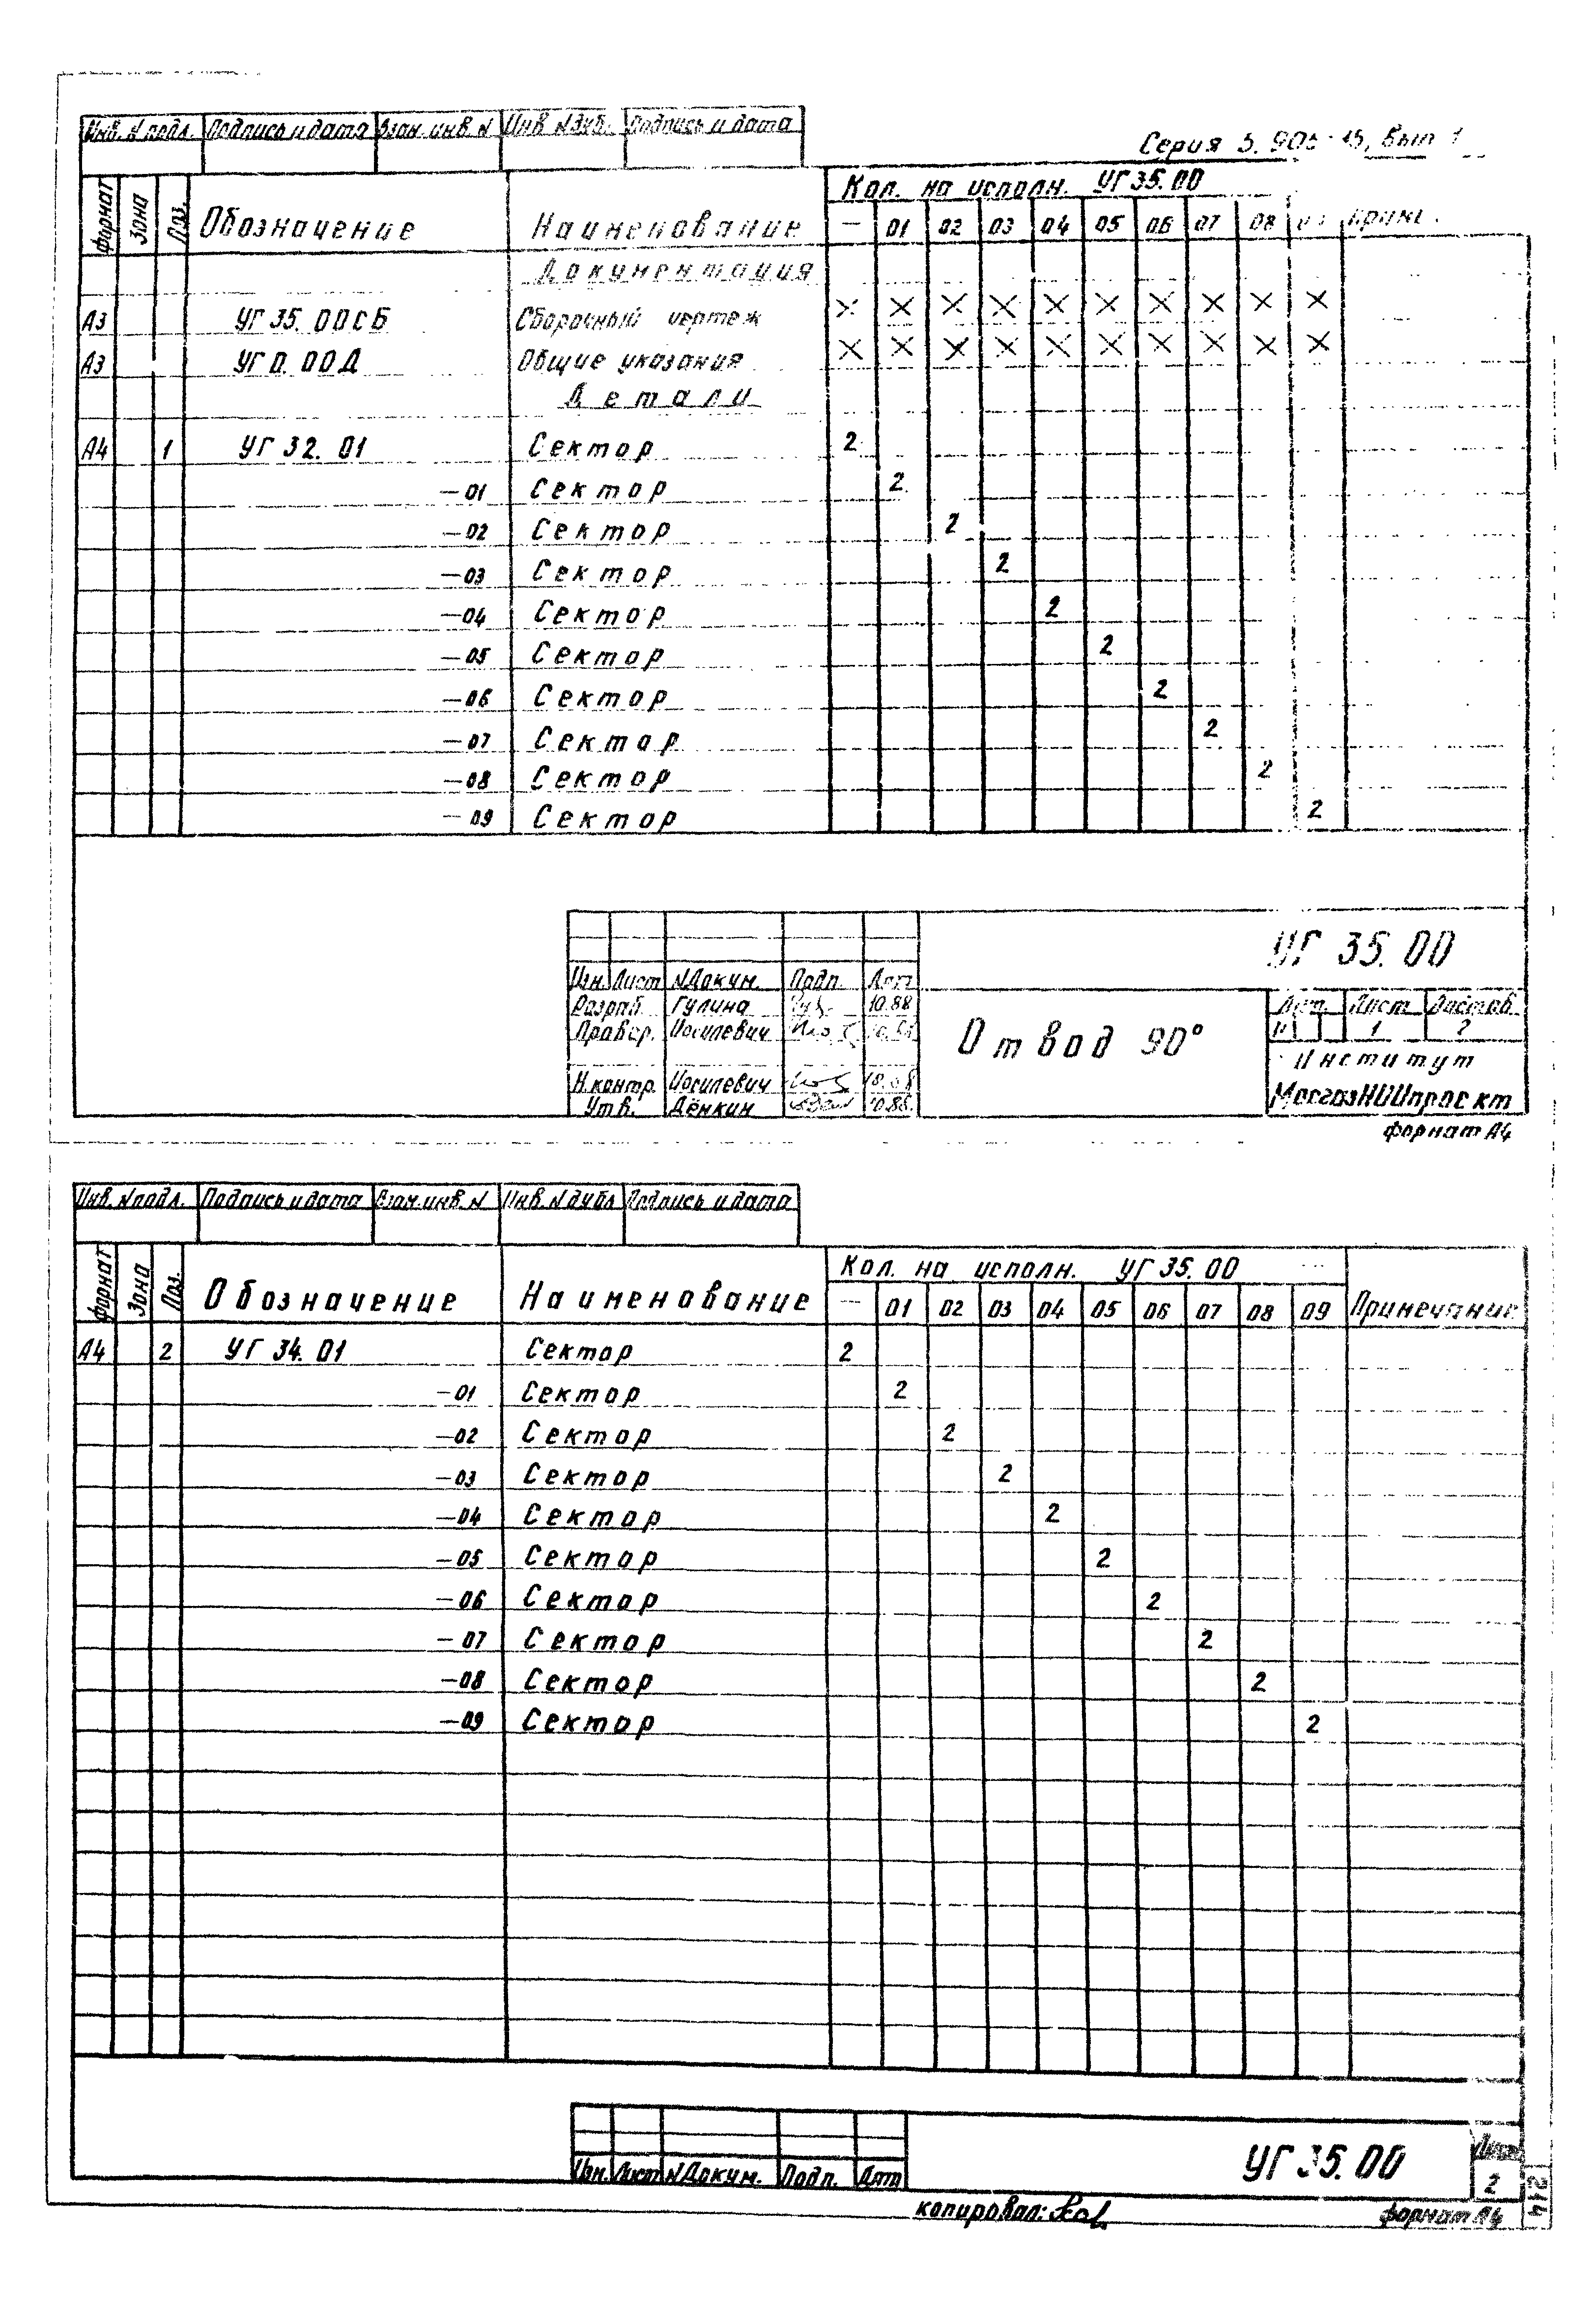 Инв. N подл. Подпись и дата Взам. инв N Инв N дуб. Подпись и дата
Серия 5. 905-15, Вып 1
формат Зона Поз. Обозначение Наименование Кол. на исполн. УГ 35.00
— 01 02 03 04 05 06 07 08
Документация
А3 УГ 35. 00СБ Сборочный чертеж × × × × × × × × × ×
А3 УГ 0. 00Д Общие указания × × × × × × × × × ×
Детали
А4 1 УГ 32. 01 Сектор 2
—01 Сектор 2
—02 Сектор 2
—03 Сектор 2
—04 Сектор 2
—05 Сектор 2
—06 Сектор 2
—07 Сектор 2
—08 Сектор 2
—09 Сектор 2
УГ 35. 00
Изм. Лист N Докум. Подп. Дат
Разраб. Гулина 10.88
Провер. Иосилевич
Н.контр. Иосилевич
Утв. Дёмкин 10.88.
Отвод 90°
Лит. Лист Листов
И 1 2
Институт
МосгазНИИпроект
формат А4
Инв. N подл. Подпись и дата Взам. инв. N Инв. N дубл Подпись и дата
формат Зона Поз. Обозначение Наименование Кол. на исполн. УГ 35. 00 Примечание
— 01 02 03 04 05 06 07 08 09
А4 2 УГ 34. 01 Сектор 2
—01 Сектор 2
—02 Сектор 2
—03 Сектор 2
—04 Сектор 2
—05 Сектор 2
—06 Сектор 2
—07 Сектор 2
—08 Сектор 2
—09 Сектор 2
Изм. Лист N Докум. Подп. Дат
УГ 35. 00
Лист
2
214
копировал:
формат А4